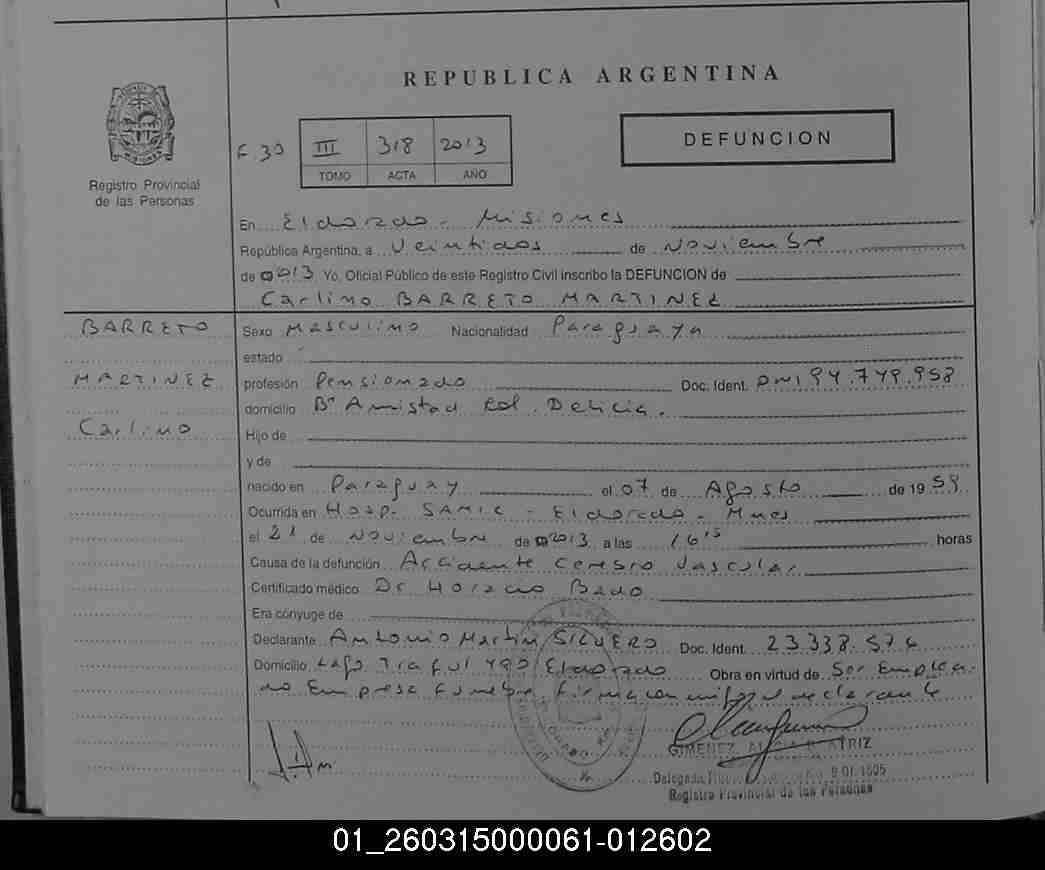 REPUBLICA ARGENTINA
DEFUNCION
F. 30 III 318 2013
TOMO ACTA AÑO
Registro Provincial
de las Personas
En Eldorado - Misiones
República Argentina, a Veintidos de Noviembre
de 2013 Yo, Oficial Público de este Registro Civil inscribo la DEFUNCION de
Carlino BARRETO MARTINEZ
BARRETO
MARTINEZ
Carlino
Sexo Masculino Nacionalidad Paraguaya
estado
profesión Pensionado Doc. Ident. DNI 94.749.958
domicilio Bº Amistad Col. Delicia.
Hijo de
y de
nacido en Paraguay el 07 de Agosto de 1959
Ocurrida en Hosp. SAMIC - Eldorado - Mnes
el 21 de Noviembre de 2013 a las 16¹⁵ horas
Causa de la defunción Accidente Cerebro Vascular
Certificado médico Dr Horacio Bado
Era cónyuge de
Declarante Antonio Martin SILVERO Doc. Ident. 23.338.576
Domicilio Lago Traful 490 Eldorado Obra en virtud de Ser Emplea-
do Empresa Funebre, firma conmigo el declarante
GIMENEZ, ALICIA BEATRIZ
Delegada
Registro Provincial de las Personas
01_260315000061-012602